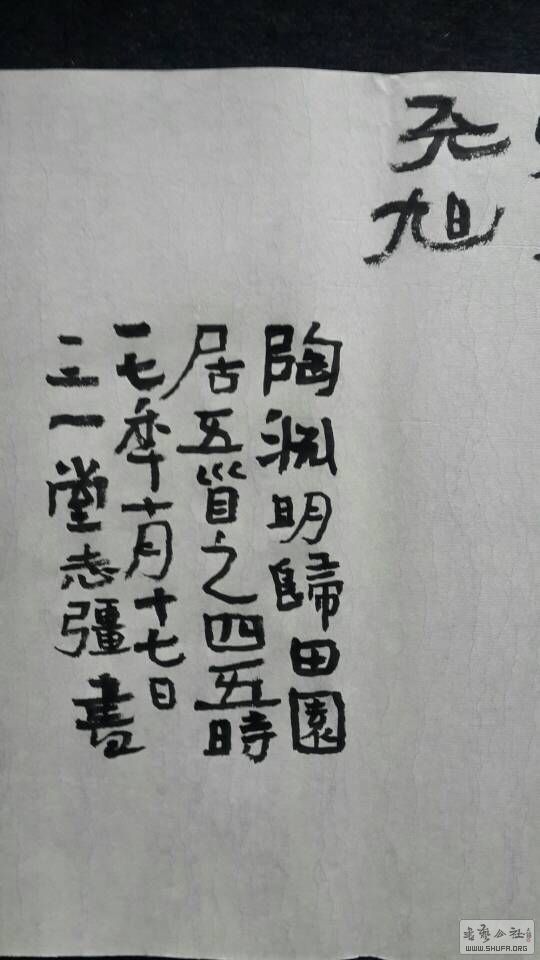 天旭
陶淵明歸田園
居五首之四五時
一七年十月十七日
三一堂志彊書
书艺公社
WWW.SHUFA.ORG